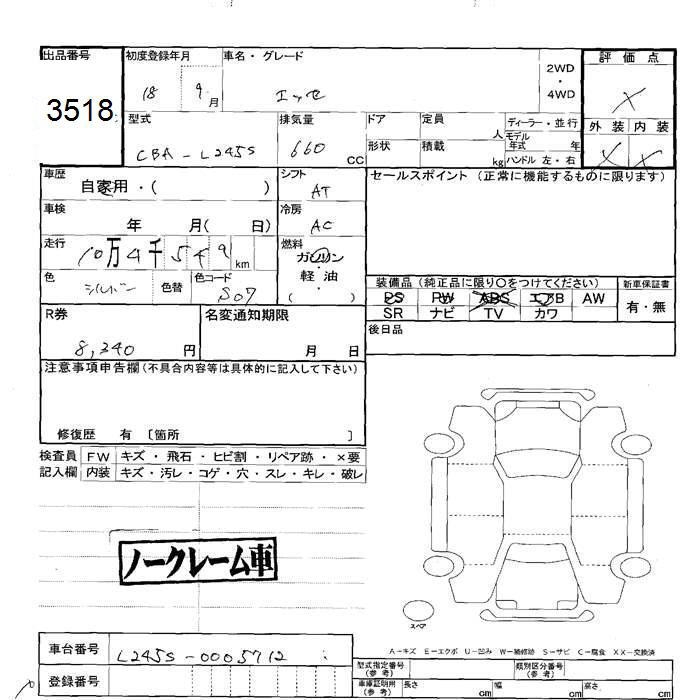 出品番号
3518
初度登録年月
18 9月
車名・グレード
エッセ
2WD
・
4WD
評価点
X
外装 内装
X X
型式
CBA-L245S
排気量
660 CC
ドア
形状
定員 人
積載 kg
ディーラー・並行
モデル年式 年
ハンドル 左・右
車歴
自家用・( )
シフト
AT
車検
年 月( 日)
冷房
AC
走行
10万4千549km
燃料
ガソリン
・
軽・油
( )
色
シルバー
色替
色コード
S07
R券
8,340 円
名変通知期限
月 日
セールスポイント (正常に機能するものに限ります)
装備品(純正品に限り〇をつけてください)
PS PW ABS エアB AW
SR ナビ TV カワ
新車保証書
有・無
後日品
注意事項申告欄(不具合内容等は具体的に記入して下さい)
修復歴 有 〔箇所 〕
検査員記入欄
FW キズ・飛石・ヒビ割・リペア跡・×要
内装 キズ・汚レ・コゲ・穴・スレ・キレ・破レ
ノークレーム車
スペア
A-キズ E-エクボ U-凹み W-補修跡 S-サビ C-腐食 XX-交換済
車台番号
L245S-0005712
登録番号
型式指定番号(参考)
類別区分番号(参考)
車庫証明用(参考) 長さ cm 幅 cm 高さ cm